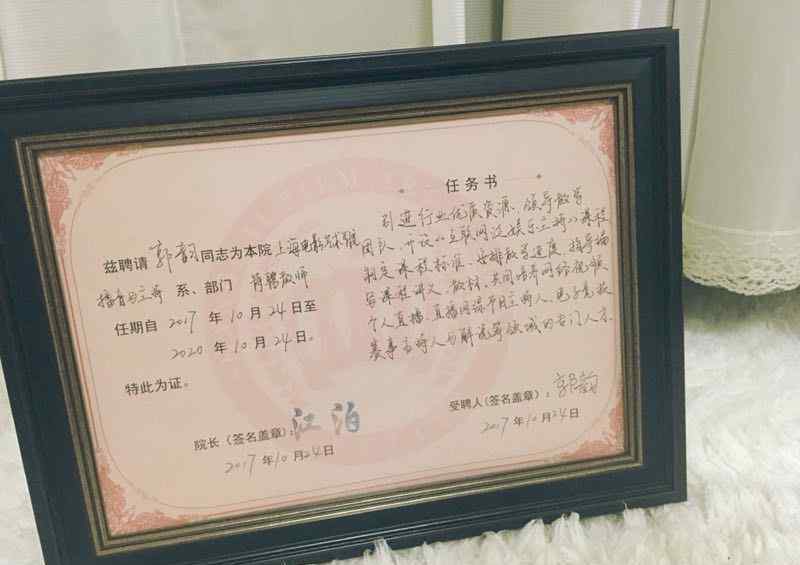 兹聘请 郭韵 同志为本院 上海电影艺术学院
播音与主持 系、部门 肖骋教师
任期自 2017 年 10 月 24 日至
2020 年 10 月 24 日。
特此为证。
院长（签名盖章）：江泊
2017 年 10 月 24 日
任务书
引进行业优质资源、领导教学
团队、开设《互联网泛娱乐主持》课程
制定课程标准、安排教学进度、指导编
写课程讲义、教材、共同培养网络视频
个人直播、直播网综节目主持人、电子竞技
赛事主持人与解说等领域的专门人才
受聘人（签名盖章）：郭韵
2017 年 10 月 24 日